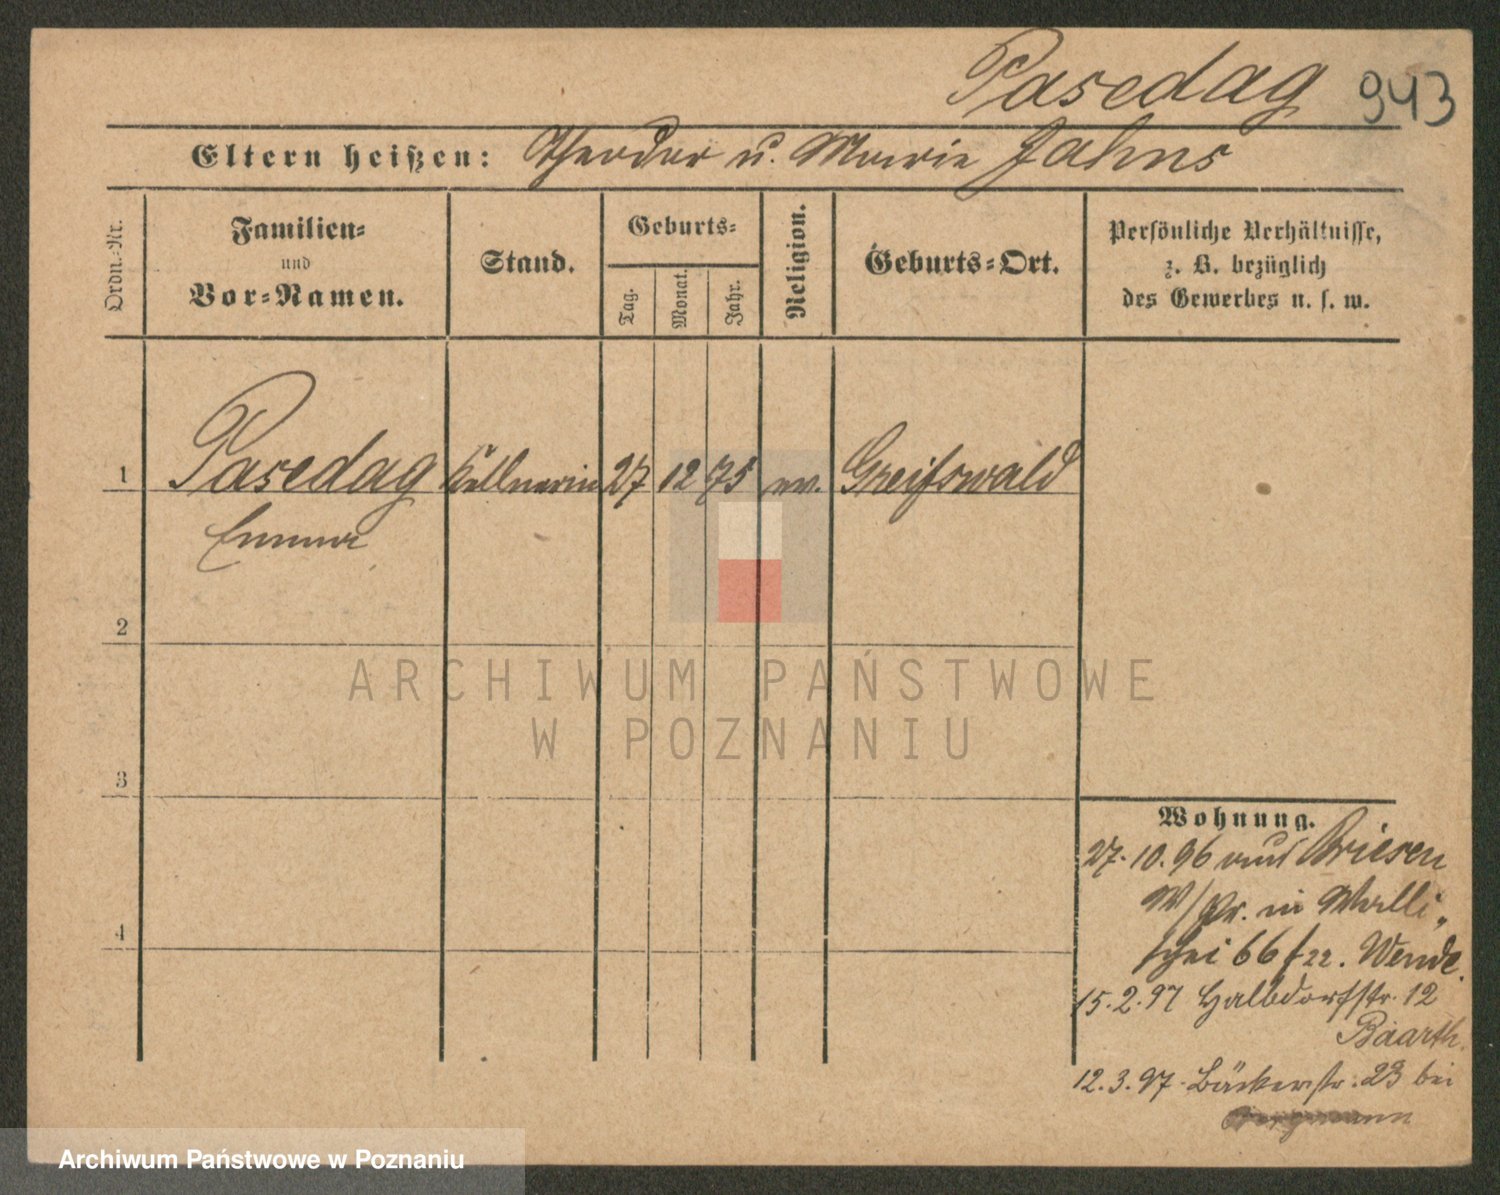 Pasedag 943
Eltern heißen: Theodor u. Marie Jahns
Ordn.-Nr.
Familien-
und
Vor-Namen.
Stand.
Geburts-
Tag.
Monat.
Jahr.
Religion.
Geburts-Ort.
Persönliche Verhältnisse,
z. B. bezüglich
des Gewerbes u. s. w.
1 Pasedag Kellnerin 27 12 75 ev. Greifswald
Emma
2
3
4
Wohnung.
27.10.96 aus Briesen
W/Pr. in Walli-
schei 66 f 22. Wende.
15.2.97 Halbdorfstr. 12
Baarth.
12.3.97. Bäckerstr. 23 bei
ARCHIWUM PAŃSTWOWE
W POZNANIU
Archiwum Państwowe w Poznaniu